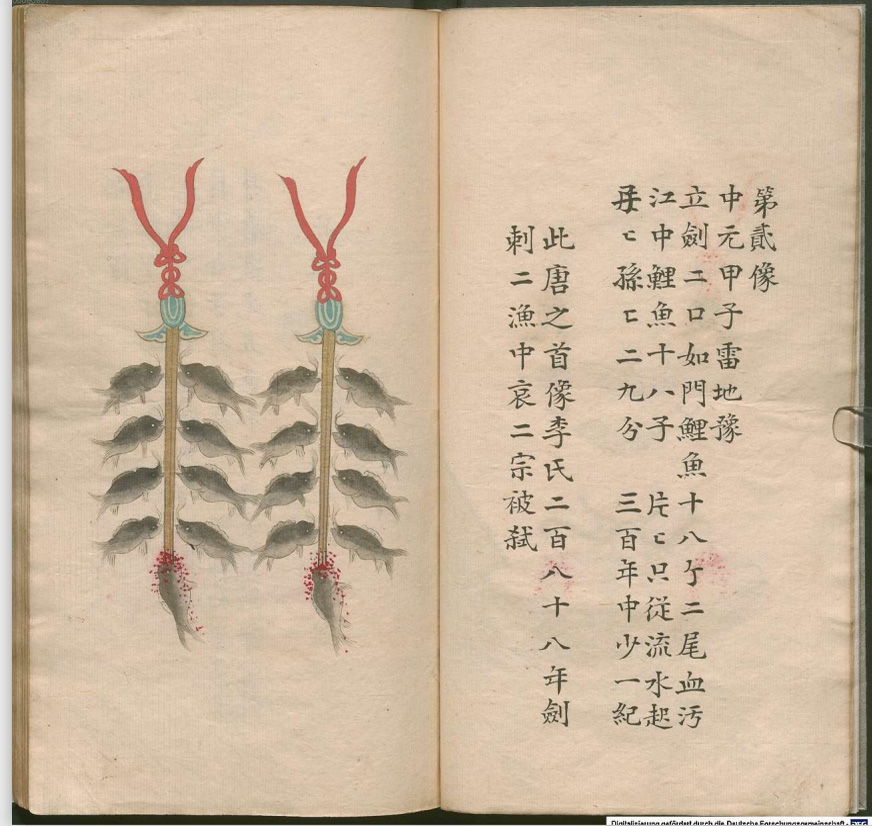 第貳像
中元甲子雷地豫
立劍二口如門鯉魚十八亇二尾血汚
江中鯉魚十八子 片匕只從流水起
匕孫匕二九分 三百年中少一紀
此唐之首像李氏二百八十八年劍
刺二漁中哀二宗被弑
Digitalisierung gefördert durch die Deutsche Forschungsgemeinschaft - DFG